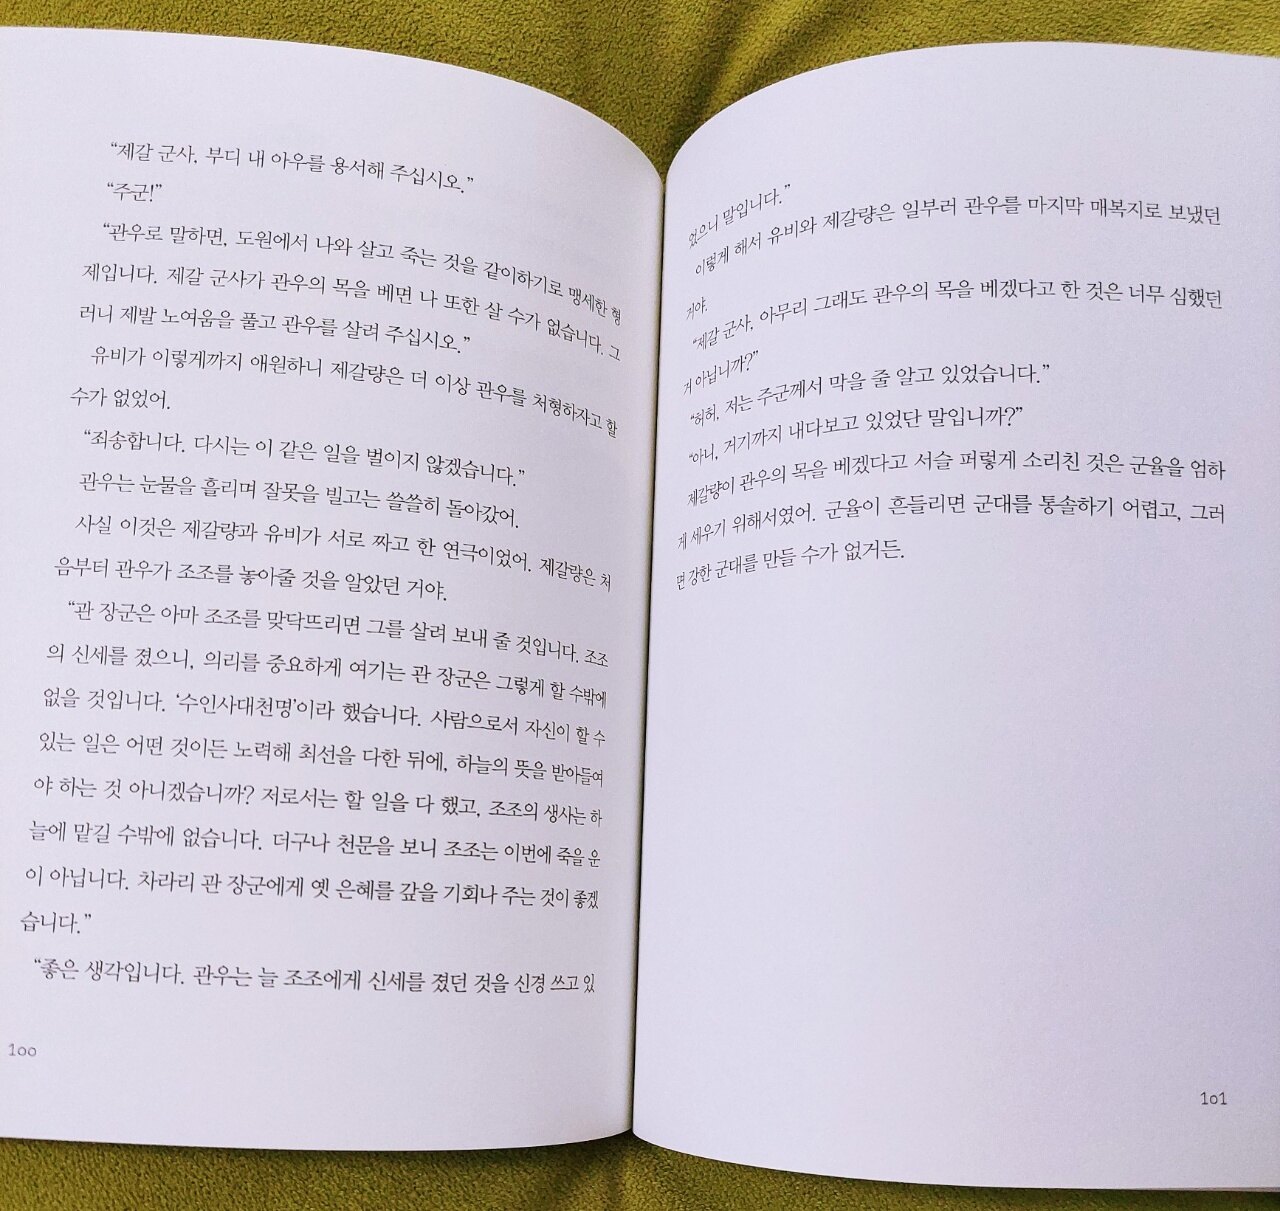 “제갈 군사, 부디 내 아우를 용서해 주십시오.”
“주군!”
“관우로 말하면, 도원에서 나와 살고 죽는 것을 같이하기로 맹세한 형
제입니다. 제갈 군사가 관우의 목을 베면 나 또한 살 수가 없습니다. 그
러니 제발 노여움을 풀고 관우를 살려 주십시오.”
유비가 이렇게까지 애원하니 제갈량은 더 이상 관우를 처형하자고 할
수가 없었어.
“죄송합니다. 다시는 이 같은 일을 벌이지 않겠습니다.”
관우는 눈물을 흘리며 잘못을 빌고는 쓸쓸히 돌아갔어.
사실 이것은 제갈량과 유비가 서로 짜고 한 연극이었어. 제갈량은 처
음부터 관우가 조조를 놓아줄 것을 알았던 거야.
“관 장군은 아마 조조를 맞닥뜨리면 그를 살려 보내 줄 것입니다. 조조
의 신세를 졌으니, 의리를 중요하게 여기는 관 장군은 그렇게 할 수밖에
없을 것입니다. ‘수인사대천명’이라 했습니다. 사람으로서 자신이 할 수
있는 일은 어떤 것이든 노력해 최선을 다한 뒤에, 하늘의 뜻을 받아들여
야 하는 것 아니겠습니까? 저로서는 할 일을 다 했고, 조조의 생사는 하
늘에 맡길 수밖에 없습니다. 더구나 천문을 보니 조조는 이번에 죽을 운
이 아닙니다. 차라리 관 장군에게 옛 은혜를 갚을 기회나 주는 것이 좋겠
습니다.”
“좋은 생각입니다. 관우는 늘 조조에게 신세를 졌던 것을 신경 쓰고 있
100
었으니 말입니다.”
이렇게 해서 유비와 제갈량은 일부러 관우를 마지막 매복지로 보냈던
거야.
“제갈 군사, 아무리 그래도 관우의 목을 베겠다고 한 것은 너무 심했던
거 아닙니까?”
“허허, 저는 주군께서 막을 줄 알고 있었습니다.”
“아니, 거기까지 내다보고 있었단 말입니까?”
제갈량이 관우의 목을 베겠다고 서슬 퍼렇게 소리친 것은 군율을 엄하
게 세우기 위해서였어. 군율이 흔들리면 군대를 통솔하기 어렵고, 그러
면 강한 군대를 만들 수가 없거든.
101